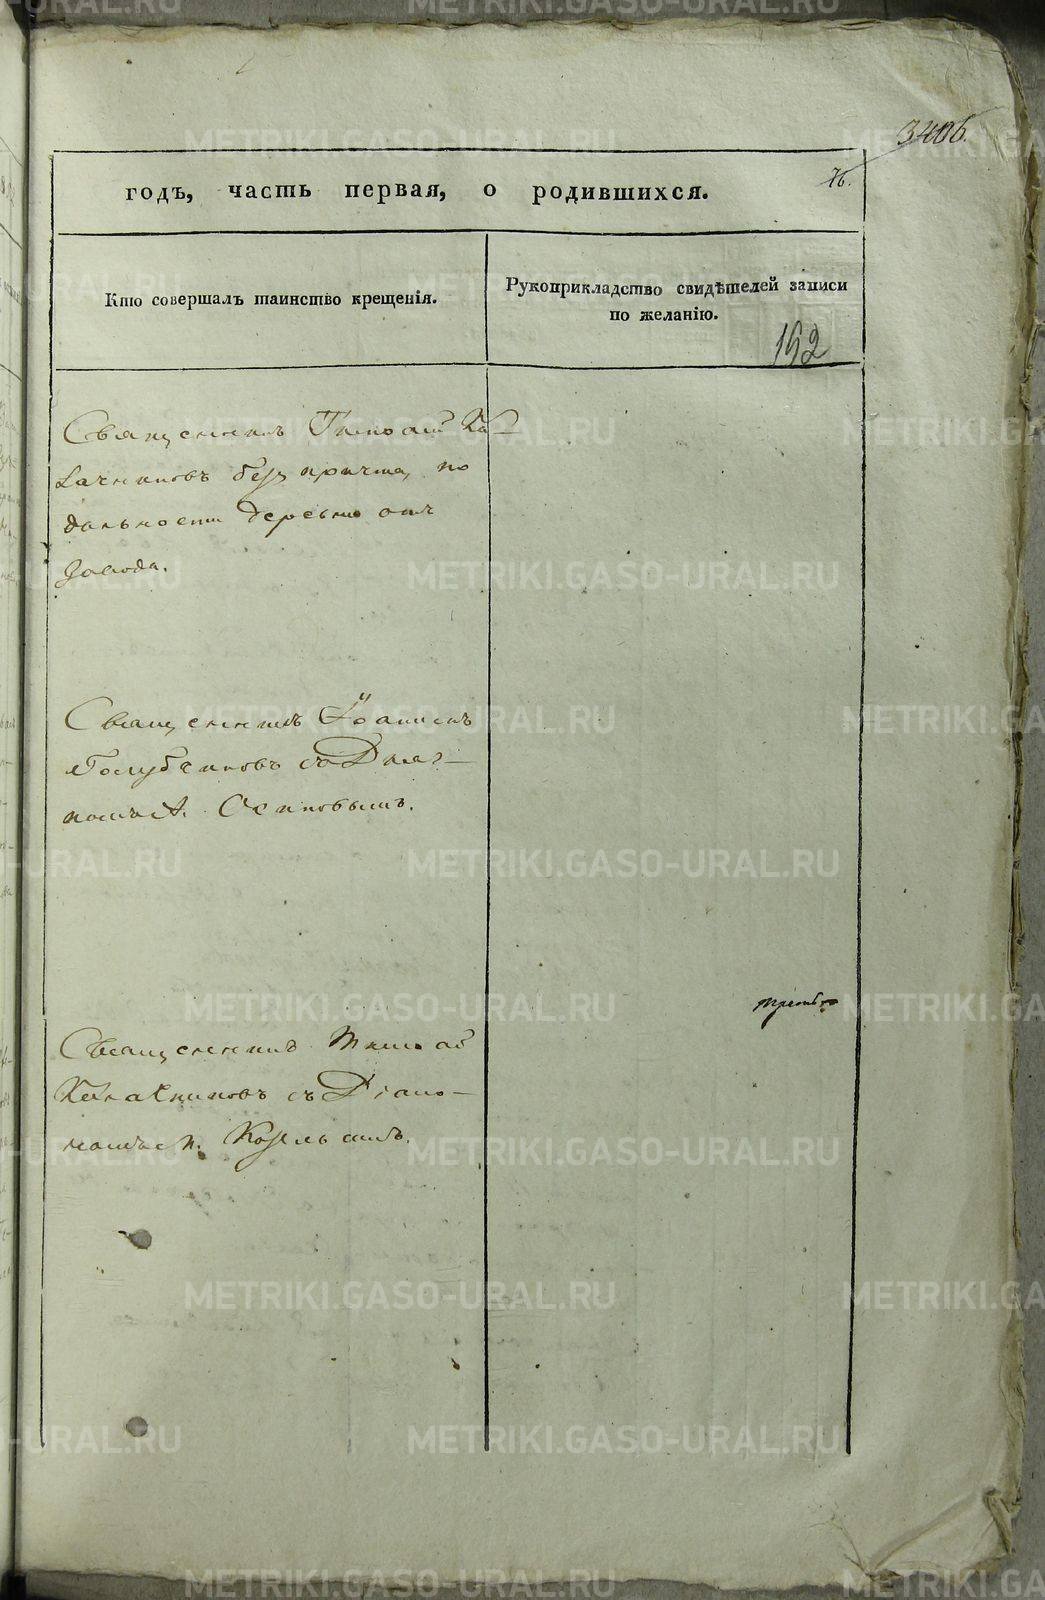 3406.
76.
годъ, часть первая, о родившихся.
Кто совершалъ таинство крещенія.
Рукоприкладство свидѣтелей записи
по желанію.
192
Священникъ Тимоѳей Ка-
лачниковъ безъ причта, по
дальности деревни отъ
завода.
Священникъ Іоаннъ
Голубчиковъ съ
Осиповымъ.
Священникъ Тимоѳей
Калачниковъ съ Діако-
номъ
METRIKI.GASO-URAL.RU